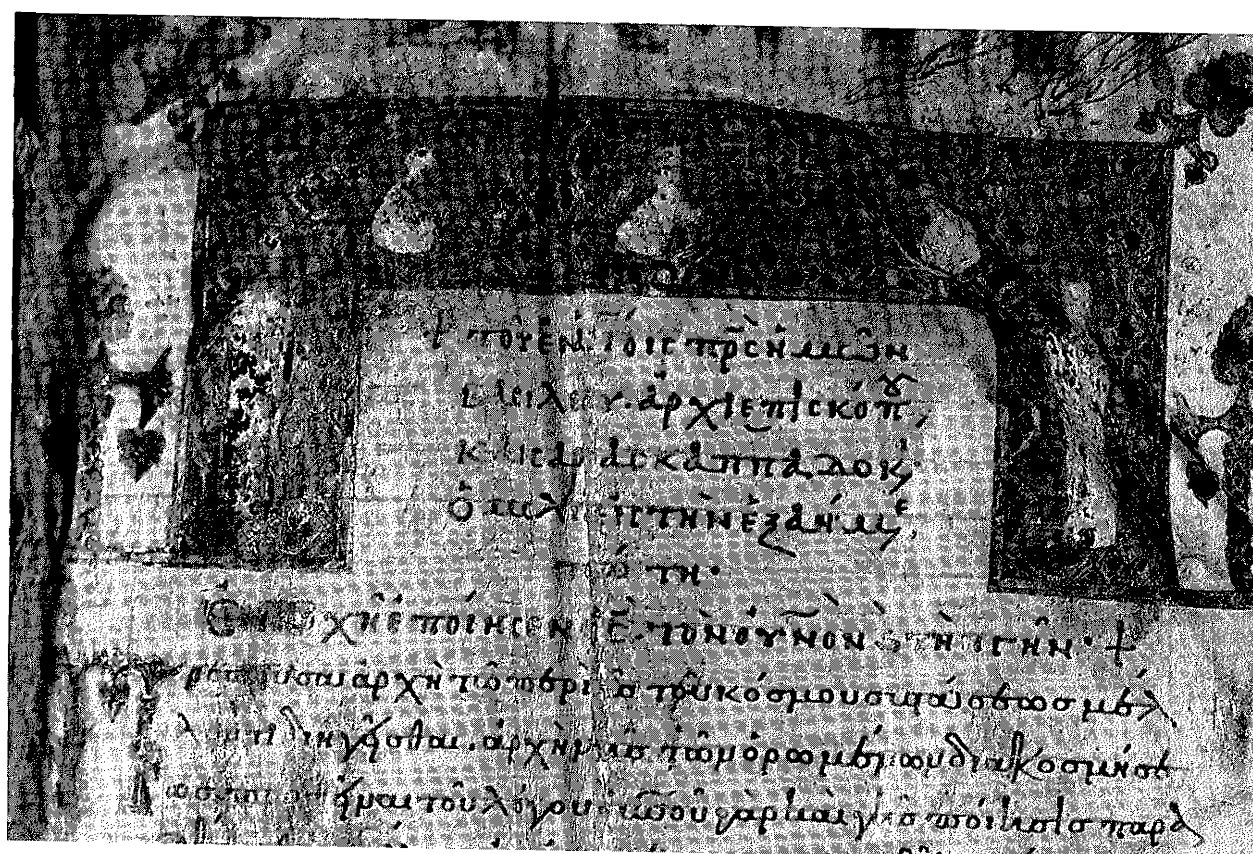 + τοῦ ἐν ἁγίοις πρ̅ς ἡμῶν
βασιλείου ἀρχιεπισκόπου
καισαρίας καππαδοκ
ὁμιλία εἰς τὴν ἑξαήμε
πρώτη·
Ἐν ἀρχῇ ἐποίησεν ὁ θ̅ς̅ τὸν οὐνὸν κ τὴν γῆν· +
πρέπουσα ἀρχὴ τῶ περὶ τῆς τοῦ κόσμου συστάσεως μέλ
λοντι διηγεῖσθαι, ἀρχὴν τῆς τῶν ὁρωμένων διακοσμήσε
ως προθεῖναι τοῦ λόγου· οὐρανοῦ γὰρ καὶ γῆς ποίησις παρα